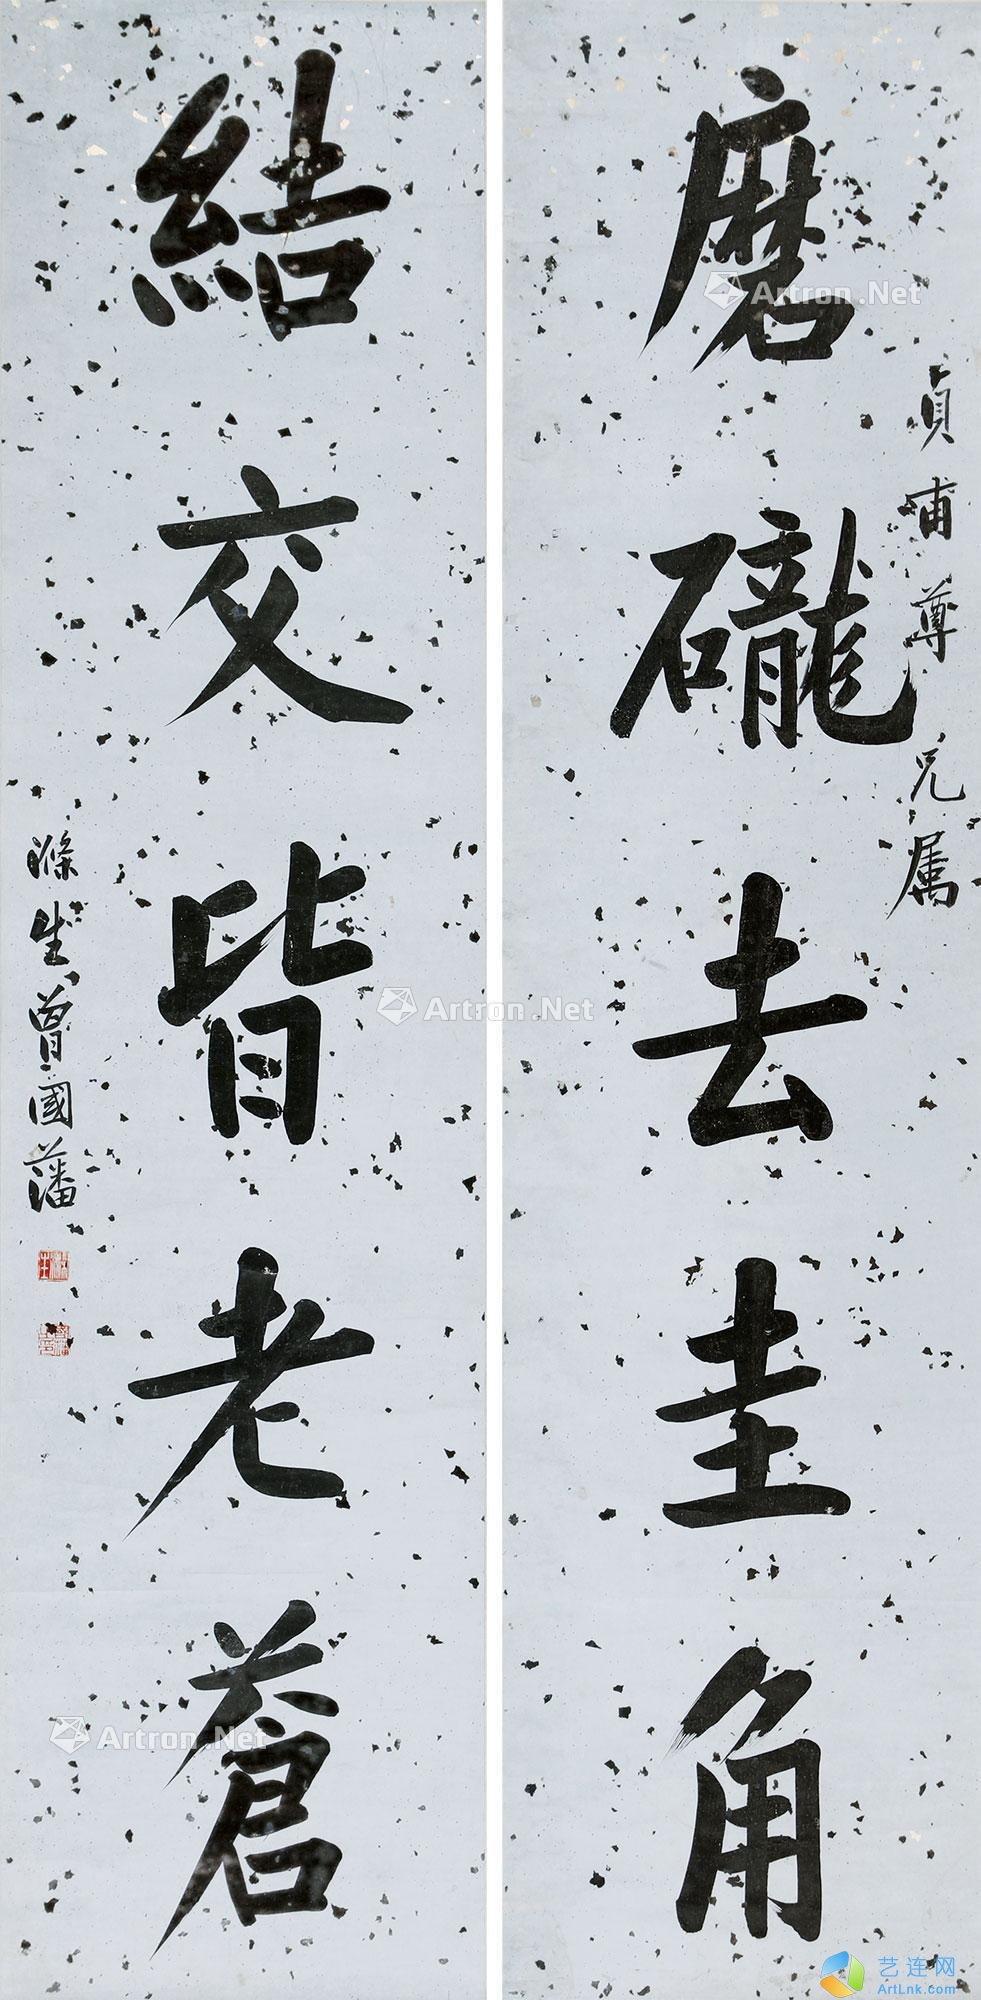 貞甫尊兄属
磨礲去圭角
結交皆老蒼
滌生曾國藩
Artron.Net
Artron.Net
Artron.Net
艺连网
ArtLnk.com